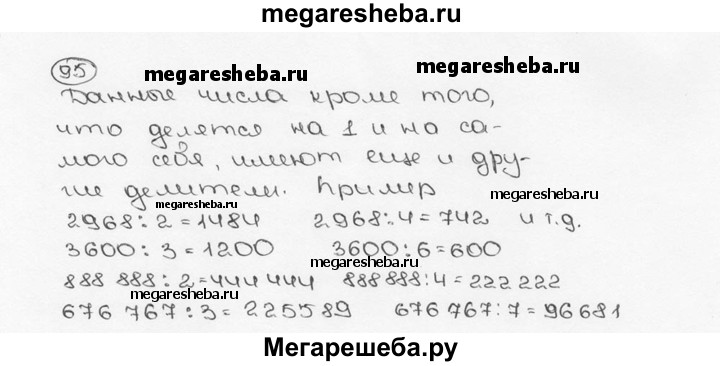 megaresheba.ru
95
megaresheba.ru megaresheba.ru
Данные числа кроме того,
что делятся на 1 и на са-
мого себя, имеют еще и дру-
гие делители. Пример
megaresheba.ru megaresheba.ru
2968:2=1484 2968:4=742 и т.д.
3600:3=1200 3600:6=600
megaresheba.ru
888 888:2=444 444 888 888:4=222 222
megaresheba.ru megaresheba.ru
676 767:3=225589 676 767:7=96681
Мегарешеба.ру